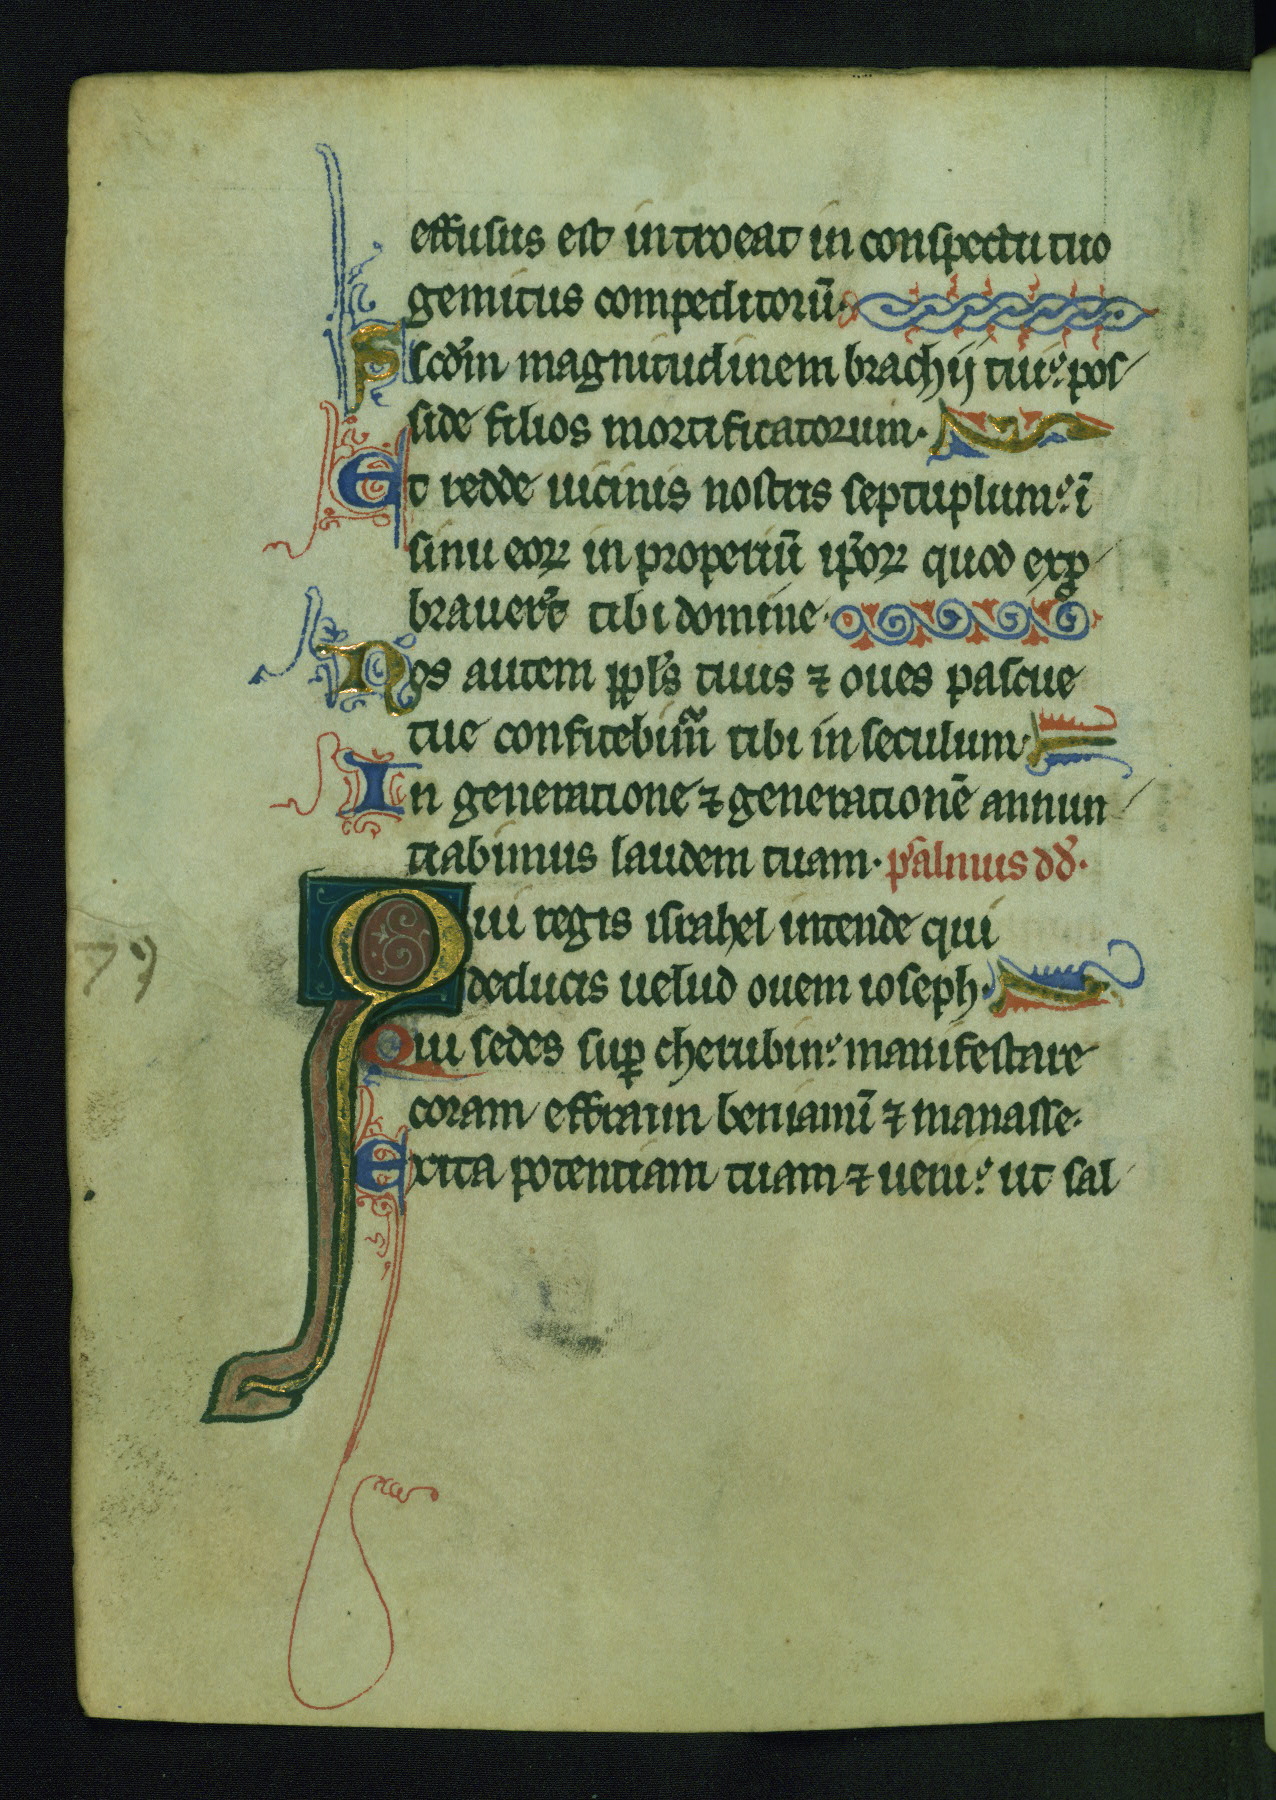 effusus est introeat in conspectu tuo
gemitus compeditorū·
Scd̄m magnitudinem brachij tui: pos
side filios mortificatorum·
Et redde uicinis nostris septuplum: ī
sinu eoꝝ in properiū ip̄oꝝ quod exꝓ
brauer̄t tibi domine·
Nos autem ppl̄s tuus ⁊ oues pascue
tue confitebim̄ tibi in seculum·
In generatione ⁊ generationē annun
tiabimus laudem tuam· psalmus dd̄·
Qui regis israhel intende qui
deducis uelud ouem ioseph·
79
Qui sedes suꝑ cherubin: manifestare
coram effraim beniamī ⁊ manasse·
Exita potentiam tuam ⁊ ueni: ut sal